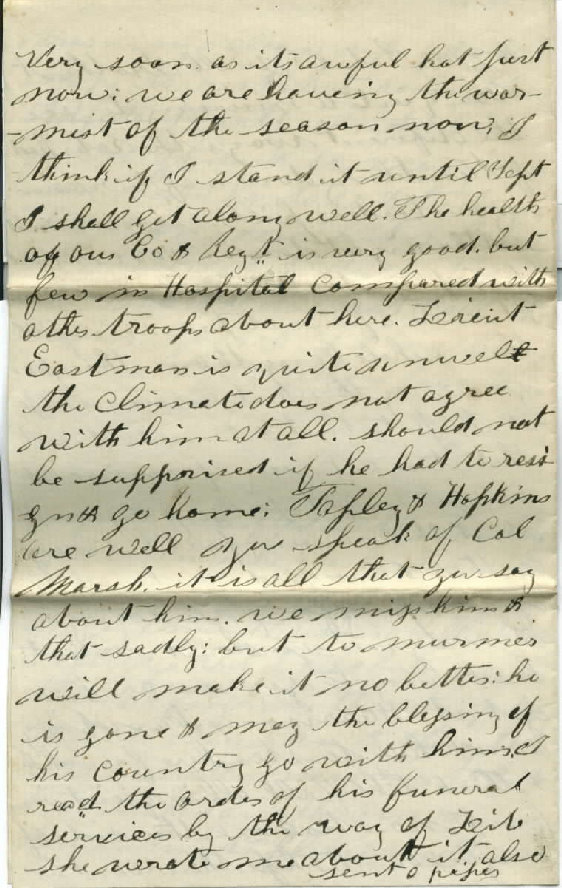 Very soon. as its awful hot just
now; we are haveing the war-
-mist of the season now; I
think if I stand it until Sept
I shall get along well. The health
of our Co & Reg't is very good. but
few in Hospital compared with
other troops about here. Lieut
Eastman is quite unwell
the climate does not agree
with him at all. should not
be supprised if he had to resi
gn & go home; Tapley & Hopkins
are well you speak of Col
Marsh. it is all that you say
about him. we miss him &
that sadly; but to murmer
will make it no better; he
is gone & may the blessing of
his country go with him. I
read the order of his funeral
services by the way of Lib
she wrote me about it. also
sent a paper